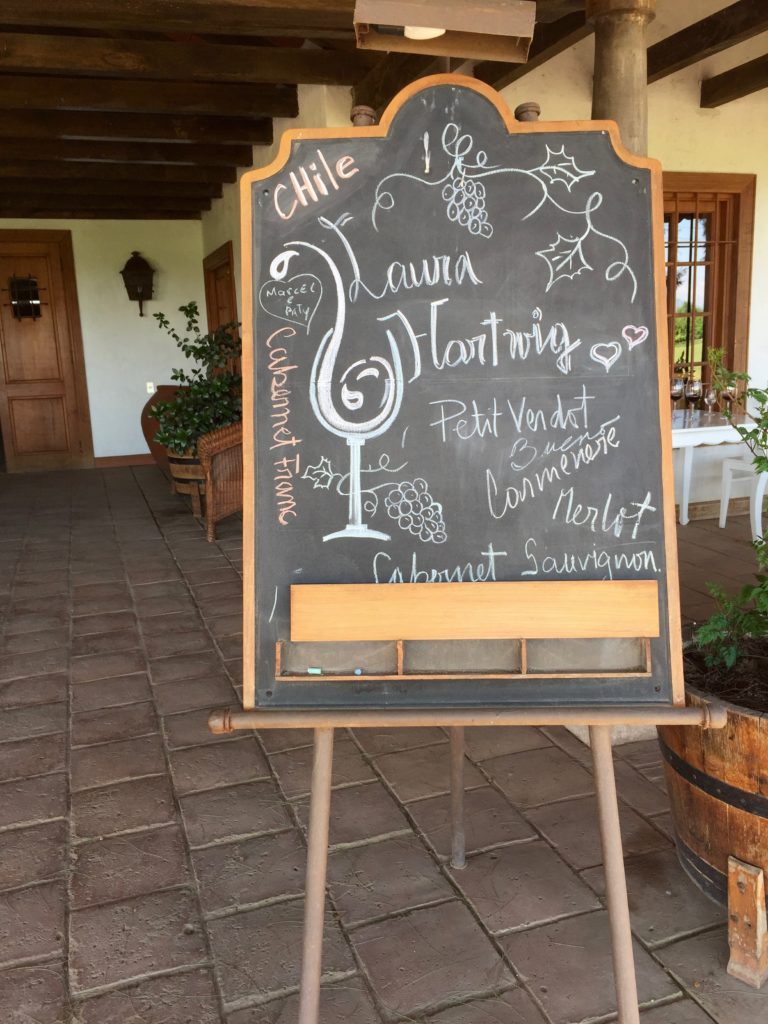 CHile
Laura
Marcel
e
Paty
Hartwig
Cabernet Franc
Petit Verdot
Bueno
Carménère
Merlot
Cabernet Sauvignon.